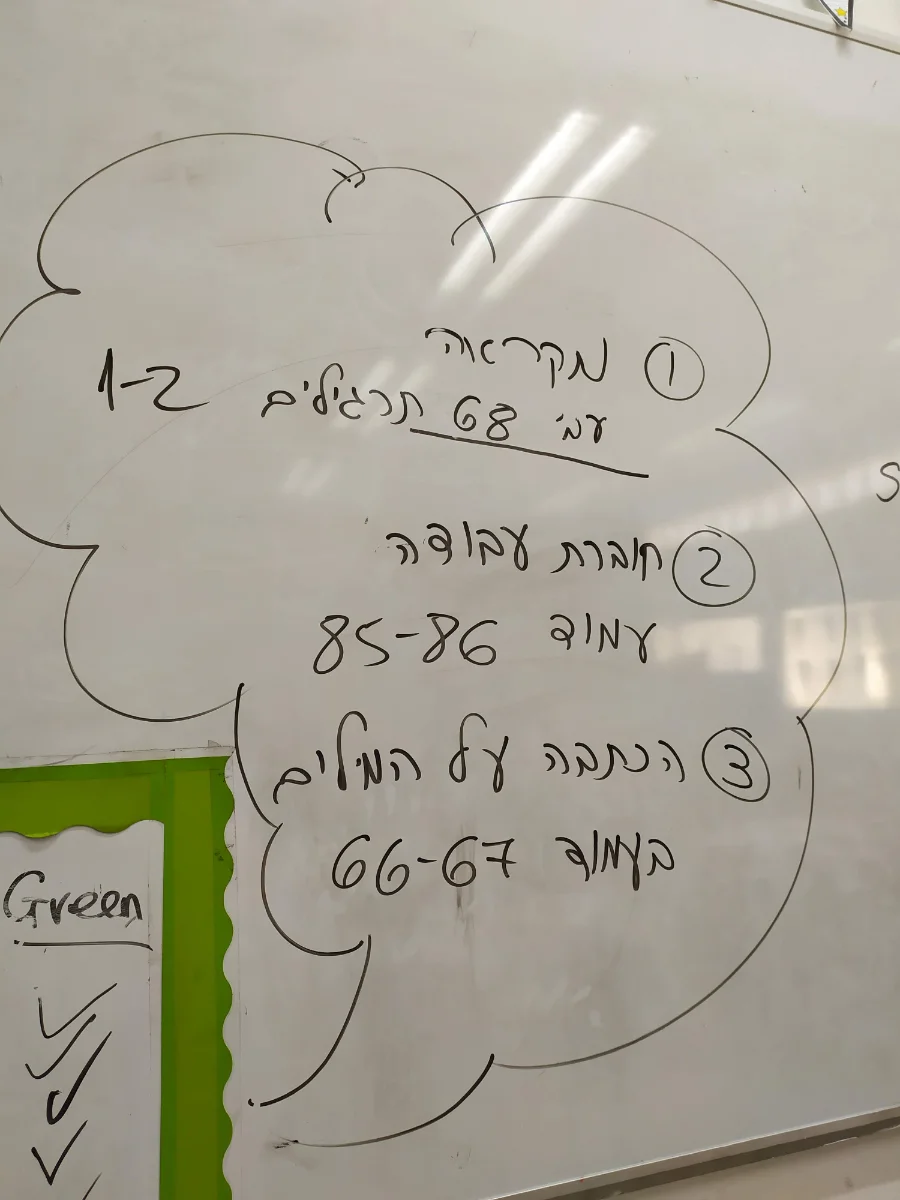 ① מקראה
עמ׳ 68 תרגילים 1-2
② חוברת עבודה
עמוד 85-86
③ הכתבה על המילים
בעמוד 66-67
Green
S